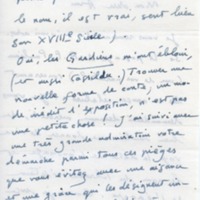 le nom, il est vrai, sent bien
son XVIIIe Siècle !
Oui, les Gardiens m'ont ébloui,
(et aussi ). Trouver une
nouvelle forme de conte, un mode
inédit d'exposition, n'est pas
une petite chose ! J'ai suivi avec
une très grande admiration votre
démarche parmi tous ces pièges
que vous évitez avec une aisance
et une grâce, qui les désignent